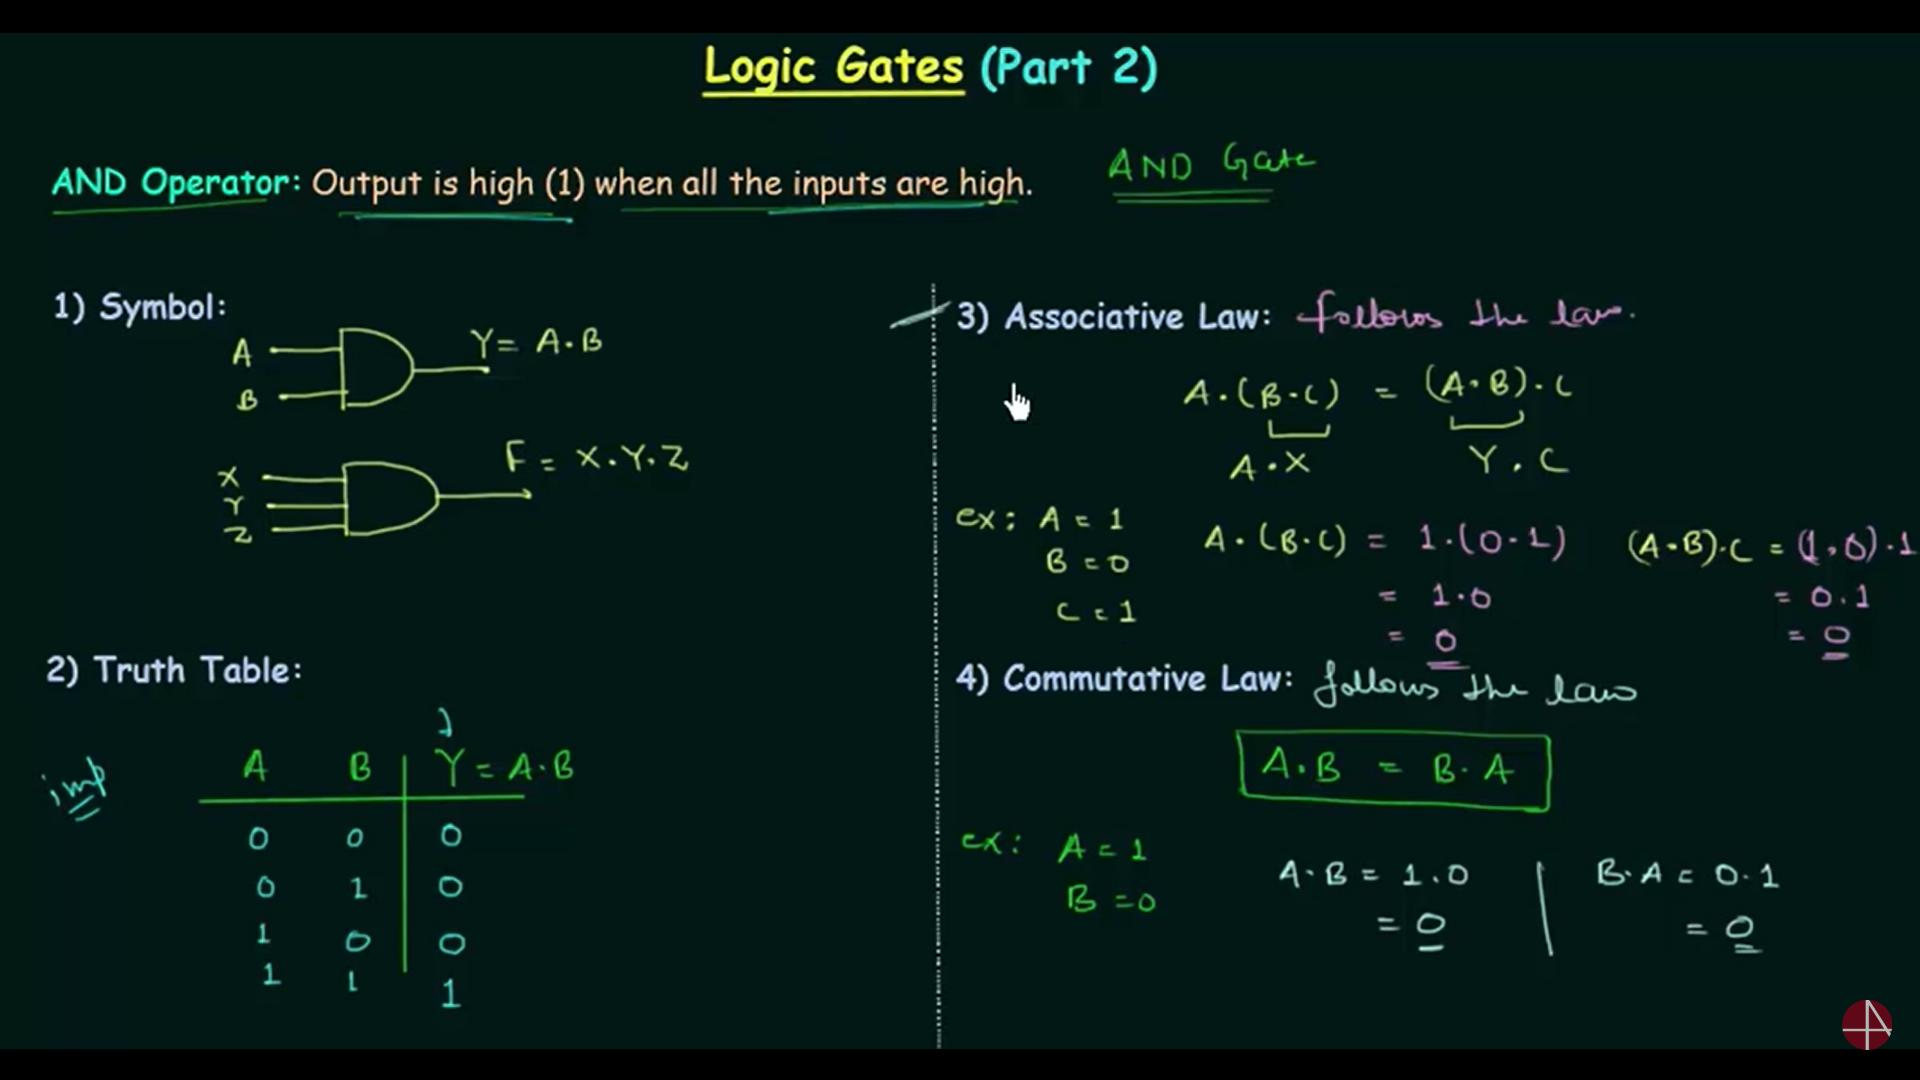 Logic Gates (Part 2)
AND Operator: Output is high (1) when all the inputs are high.
AND Gate
1) Symbol:
A
B
Y = A.B
X
Y
Z
F = X.Y.Z
2) Truth Table:
imp
A B Y = A.B
0 0 0
0 1 0
1 0 0
1 1 1
3) Associative Law: follows the law.
A.(B.C) = (A.B).C
A.X Y.C
ex: A = 1
B = 0
C = 1
A.(B.C) = 1.(0.1)
= 1.0
= 0
(A.B).C = (1.0).1
= 0.1
= 0
4) Commutative Law: follows the law
A.B = B.A
ex: A = 1
B = 0
A.B = 1.0
= 0
B.A = 0.1
= 0